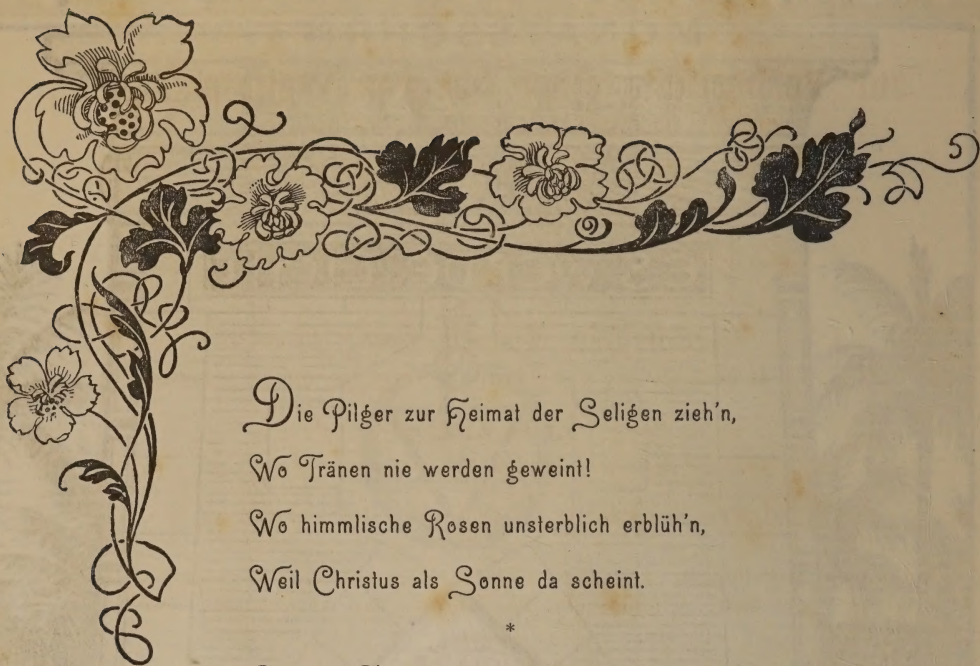 Die Pilger zur Heimat der Seligen zieh'n,
Wo Tränen nie werden geweint!
Wo himmlische Rosen unsterblich erblüh'n,
Weil Christus als Sonne da scheint.
*